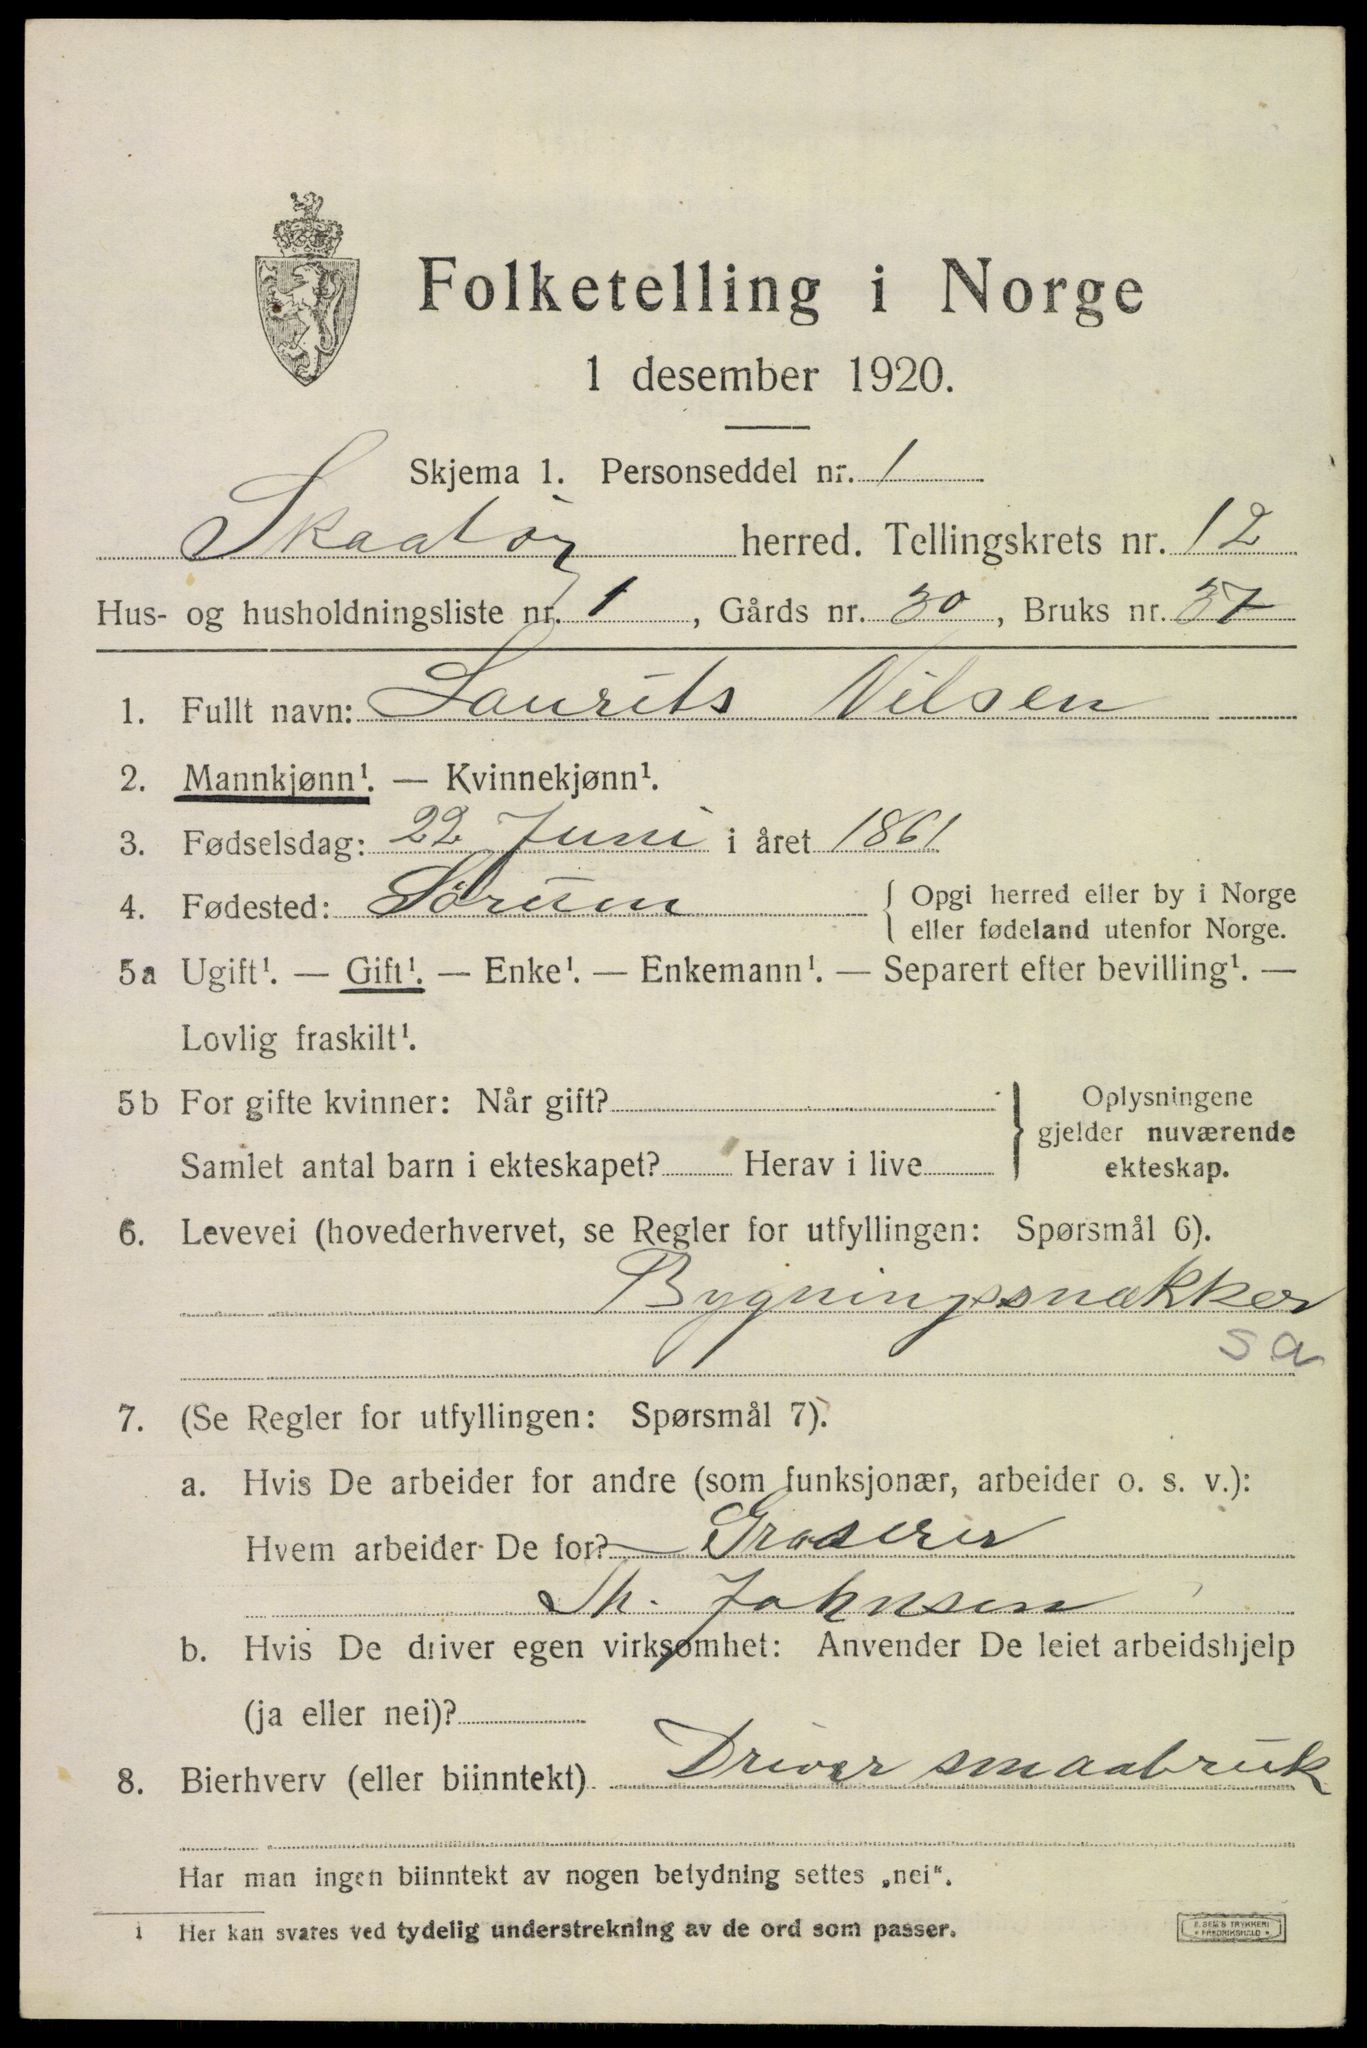 Folketelling i Norge
1 desember 1920.
Skjema 1. Personseddel nr. 1
Skaatøy herred. Tellingskrets nr. 12
Hus- og husholdningsliste nr. 1, Gårds nr. 30, Bruks nr. 37
1. Fullt navn: Laurits Nilsen
2. Mannkjønn¹. — Kvinnekjønn¹.
3. Fødselsdag: 22 Juni i året 1861
4. Fødested: Sørum { Opgi herred eller by i Norge
eller fødeland utenfor Norge.
5a Ugift¹. — Gift¹. — Enke¹. — Enkemann¹. — Separert efter bevilling¹. —
Lovlig fraskilt¹.
5b For gifte kvinner: Når gift? } Oplysningene
gjelder nuværende
Samlet antal barn i ekteskapet? Herav i live
ekteskap.
6. Levevei (hovederhvervet, se Regler for utfyllingen: Spørsmål 6).
Bygningssnækker
sa
7. (Se Regler for utfyllingen: Spørsmål 7).
a. Hvis De arbeider for andre (som funksjonær, arbeider o. s. v.):
Hvem arbeider De for? Groserer
Th. Johnsen
b. Hvis De driver egen virksomhet: Anvender De leiet arbeidshjelp
(ja eller nei)?
8. Bierhverv (eller biinntekt) Driver smaabruk
Har man ingen biinntekt av nogen betydning settes „nei“.
1 Her kan svares ved tydelig understrekning av de ord som passer.
E. SEM'S TRYKKERI
FREDRIKSHALD